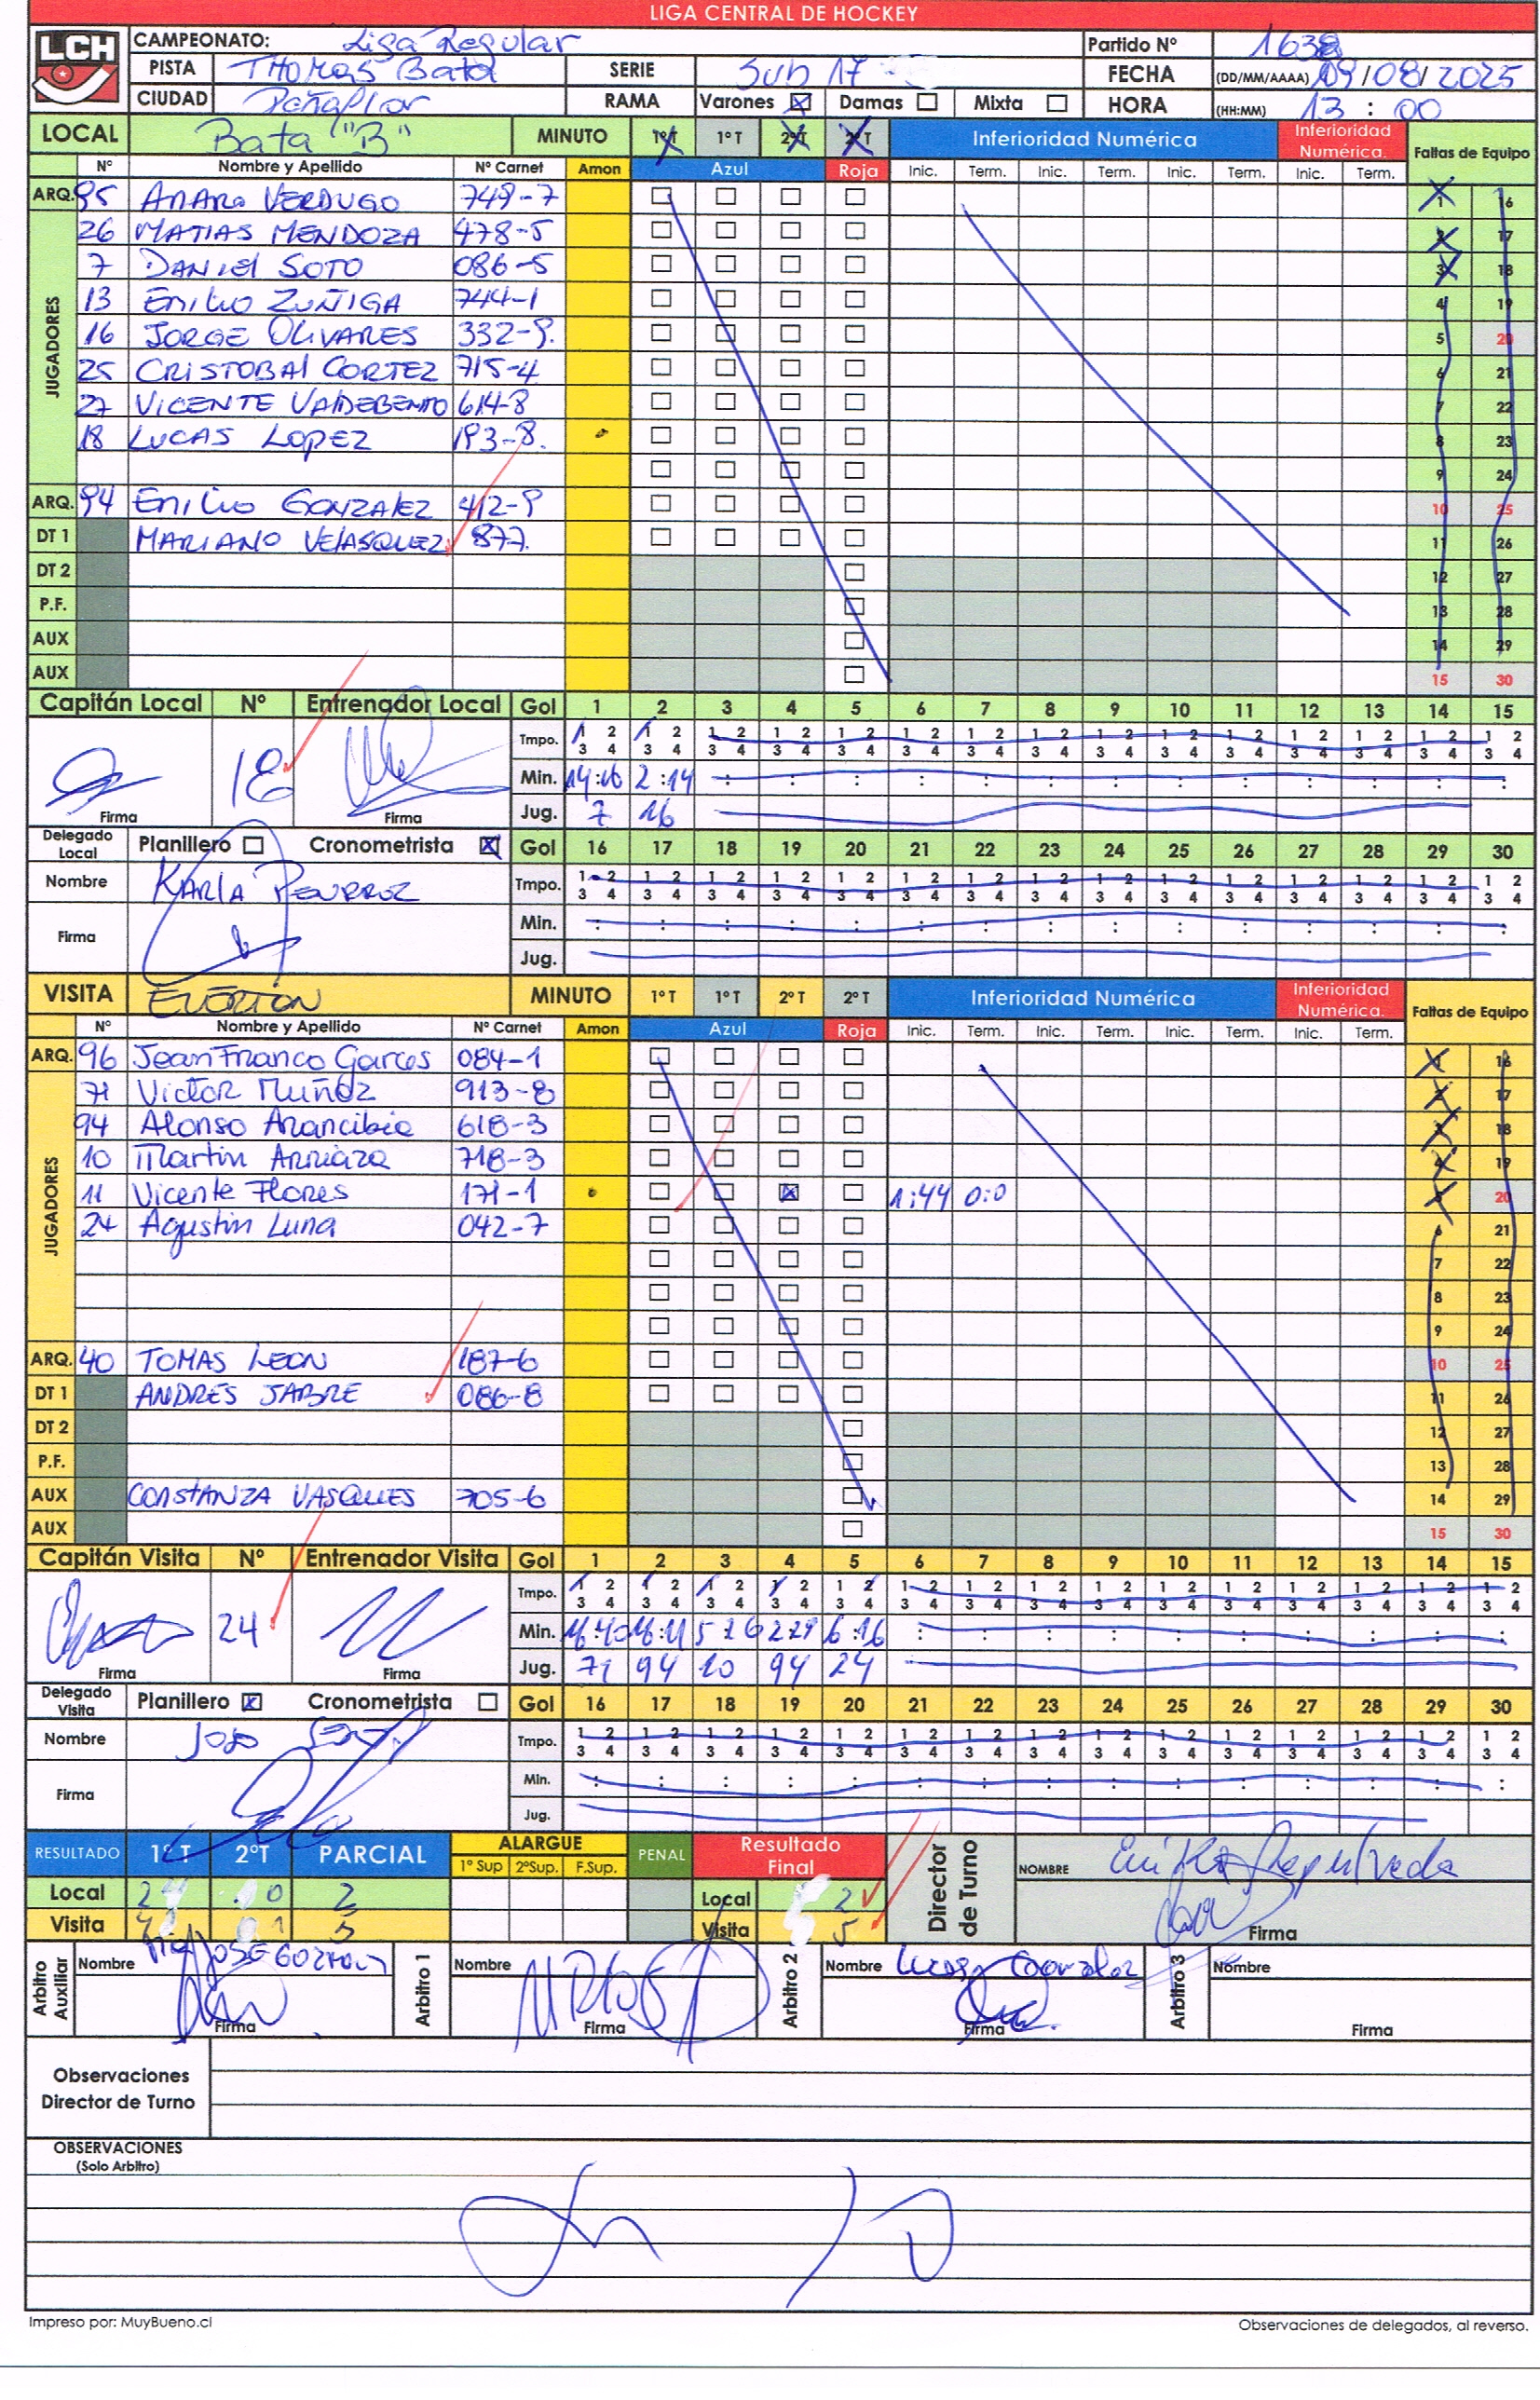 LIGA CENTRAL DE HOCKEY
LCH
CAMPEONATO: Liga Regular Partido Nº
PISTA THOMAS Bata SERIE Sub 17 FECHA (DD/MM/AAAA) 09/08/2025
CIUDAD Peñaflor RAMA Varones Damas Mixta HORA (HH:MM) 13 : 00
LOCAL Bata "B" MINUTO 1ºT 1º T 2ºT 2ºT Inferioridad Numérica Inferioridad Numérica. Faltas de Equipo
Nº Nombre y Apellido Nº Carnet Amon Azul Roja Inic. Term. Inic. Term. Inic. Term. Inic. Term.
JUGADORES
ARQ. 95 VERDUGO 749-7 1 16
26 MATIAS MENDOZA 478-5 2 17
7 DANIEL SOTO 086-5 3 18
13 EMILIO ZUÑIGA 744-1 4 19
16 JORGE OLIVARES 332-9. 5 20
25 CRISTOBAL CORTEZ 715-4 6 21
27 VICENTE VALDEBENITO 614-8 7 22
18 LUCAS LOPEZ 193-8. 8 23
9 24
ARQ. 94 EMILIO GONZALEZ 412-9 10 25
DT 1 MARIANO VELASQUEZ 877. 11 26
DT 2 12 27
P.F. 13 28
AUX 14 29
AUX 15 30
Capitán Local Nº Entrenador Local Gol 1 2 3 4 5 6 7 8 9 10 11 12 13 14 15
Tmpo. 1 2 3 4 1 2 3 4 1 2 3 4 1 2 3 4 1 2 3 4 1 2 3 4 1 2 3 4 1 2 3 4 1 2 3 4 1 2 3 4 1 2 3 4 1 2 3 4 1 2 3 4 1 2 3 4 1 2 3 4
18 Min. 2:14
Firma Firma Jug. 7 16
Delegado Local Planillero Cronometrista Gol 16 17 18 19 20 21 22 23 24 25 26 27 28 29 30
Nombre KARLA Tmpo. 1 2 3 4 1 2 3 4 1 2 3 4 1 2 3 4 1 2 3 4 1 2 3 4 1 2 3 4 1 2 3 4 1 2 3 4 1 2 3 4 1 2 3 4 1 2 3 4 1 2 3 4 1 2 3 4 1 2 3 4
Firma Min.
Jug.
VISITA EVERTON MINUTO 1º T 1º T 2º T 2º T Inferioridad Numérica Inferioridad Numérica. Faltas de Equipo
Nº Nombre y Apellido Nº Carnet Amon Azul Roja Inic. Term. Inic. Term. Inic. Term. Inic. Term.
JUGADORES
ARQ. 96 Jean Franco Garces 084-1 1 16
71 Victor Muñoz 913-8 2 17
94 Alonso Arancibia 618-3 3 18
10 Martin Arriaza 718-3 4 19
11 Vicente Flores 171-1 1:44 0:0 5 20
24 Agustin Luna 042-7 6 21
7 22
8 23
9 24
ARQ. 40 TOMAS LEON 187-6 10 25
DT 1 ANDRES JABRE 086-8 11 26
DT 2 12 27
P.F. 13 28
AUX CONSTANZA VASQUES 705-6 14 29
AUX 15 30
Capitán Visita Nº Entrenador Visita Gol 1 2 3 4 5 6 7 8 9 10 11 12 13 14 15
Tmpo. 1 2 3 4 1 2 3 4 1 2 3 4 1 2 3 4 1 2 3 4 1 2 3 4 1 2 3 4 1 2 3 4 1 2 3 4 1 2 3 4 1 2 3 4 1 2 3 4 1 2 3 4 1 2 3 4 1 2 3 4
24 Min. 6:16
Firma Firma Jug. 71 94 10 94 24
Delegado Visita Planillero Cronometrista Gol 16 17 18 19 20 21 22 23 24 25 26 27 28 29 30
Nombre Tmpo. 1 2 3 4 1 2 3 4 1 2 3 4 1 2 3 4 1 2 3 4 1 2 3 4 1 2 3 4 1 2 3 4 1 2 3 4 1 2 3 4 1 2 3 4 1 2 3 4 1 2 3 4 1 2 3 4 1 2 3 4 1 2 3 4
Firma Min.
Jug.
RESULTADO 1ºT 2ºT PARCIAL ALARGUE 1º Sup 2ºSup. F.Sup. PENAL Resultado Final Director de Turno NOMBRE Erika Sepulveda
Local 2 0 2 Local 2
Visita 1 5 Visita 5 Firma
Arbitro Auxiliar Nombre JOSE Arbitro 1 Nombre Arbitro 2 Nombre Gonzalez Arbitro 3 Nombre
Firma Firma Firma Firma
Observaciones
Director de Turno
OBSERVACIONES
(Solo Arbitro)
Impreso por: MuyBueno.cl Observaciones de delegados, al reverso.